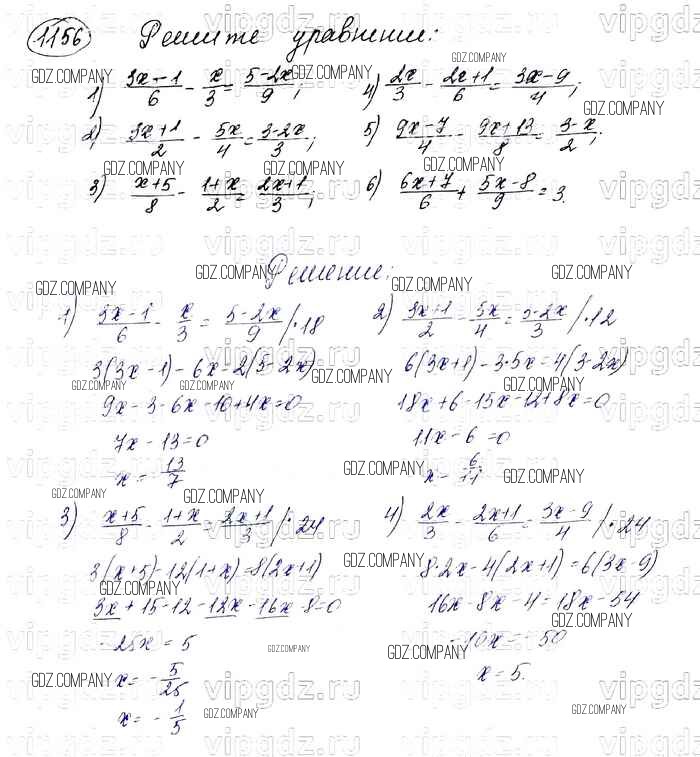 1156 Решите уравнения:
1) (3x-1)/6 - x/3 = (5-2x)/9;
2) (3x+1)/2 - 5x/4 = (3-2x)/3;
3) (x+5)/8 - (1+x)/2 = (2x+1)/3;
4) 2x/3 - (2x+1)/6 = (3x-9)/4;
5) (9x-7)/4 - (9x+13)/8 = (3-x)/2;
6) (6x+7)/6 + (5x-8)/9 = 3.
Решение:
1) (3x-1)/6 - x/3 = (5-2x)/9 /·18
3(3x-1)-6x-2(5-2x)
9x-3-6x-10+4x=0
7x-13=0
x= 13/7
2) (3x+1)/2 - 5x/4 = (3-2x)/3 /·12
6(3x+1)-3·5x=4(3-2x)
18x+6-15x-12+8x=0
11x-6=0
x= 6/11
3) (x+5)/8 - (1+x)/2 = (2x+1)/3 /·24
3(x+5)-12(1+x)=8(2x+1)
3x+15-12-12x-16x-8=0
-25x=5
x= -5/25
x= -1/5
4) 2x/3 - (2x+1)/6 = (3x-9)/4 /·24
8·2x-4(2x+1)=6(3x-9)
16x-8x-4=18x-54
-10x=-50
x=5.
GDZ.COMPANY
vipgdz.ru